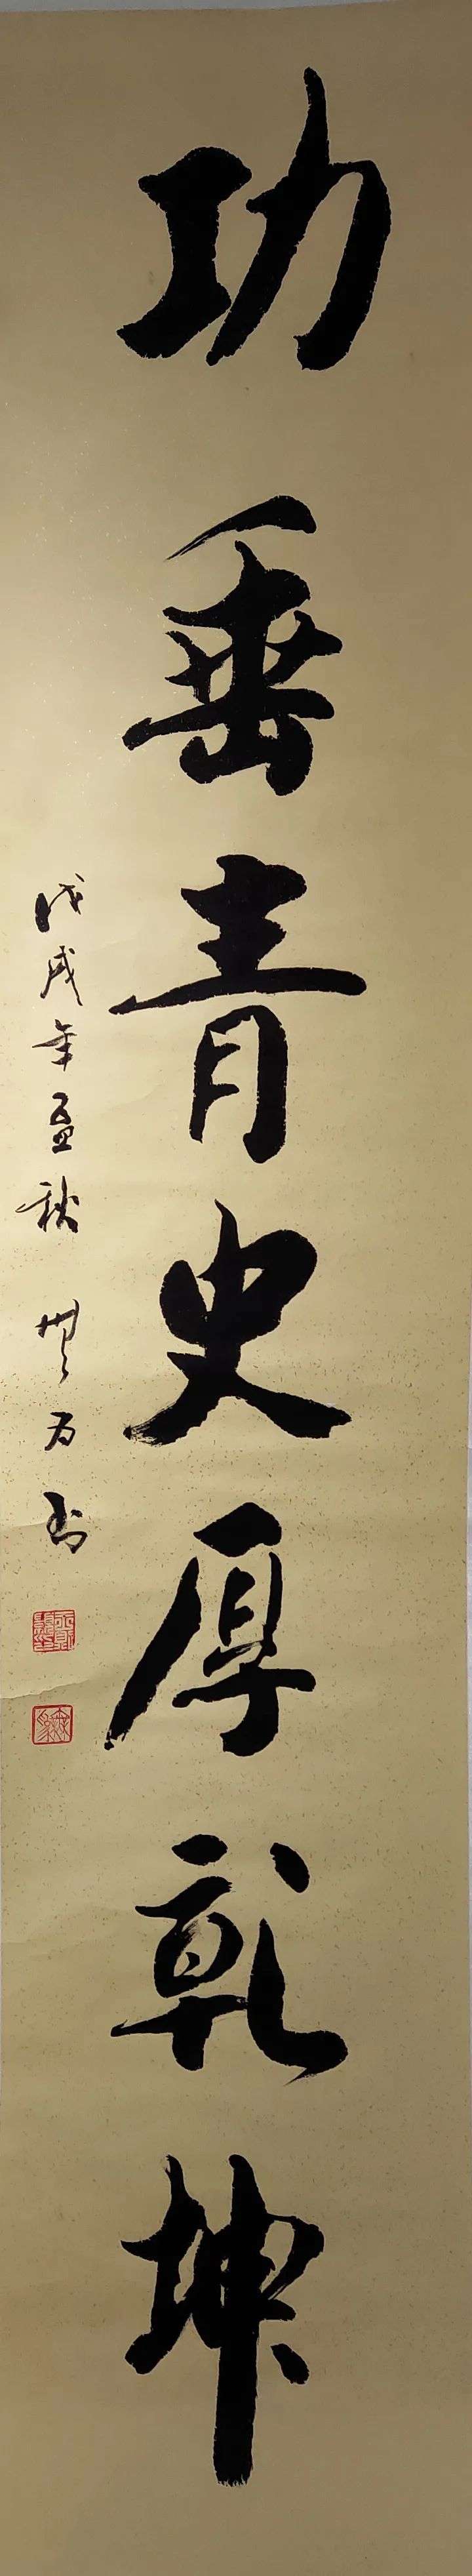 功垂青史厚乾坤
戊戌年孟秋 樊百书